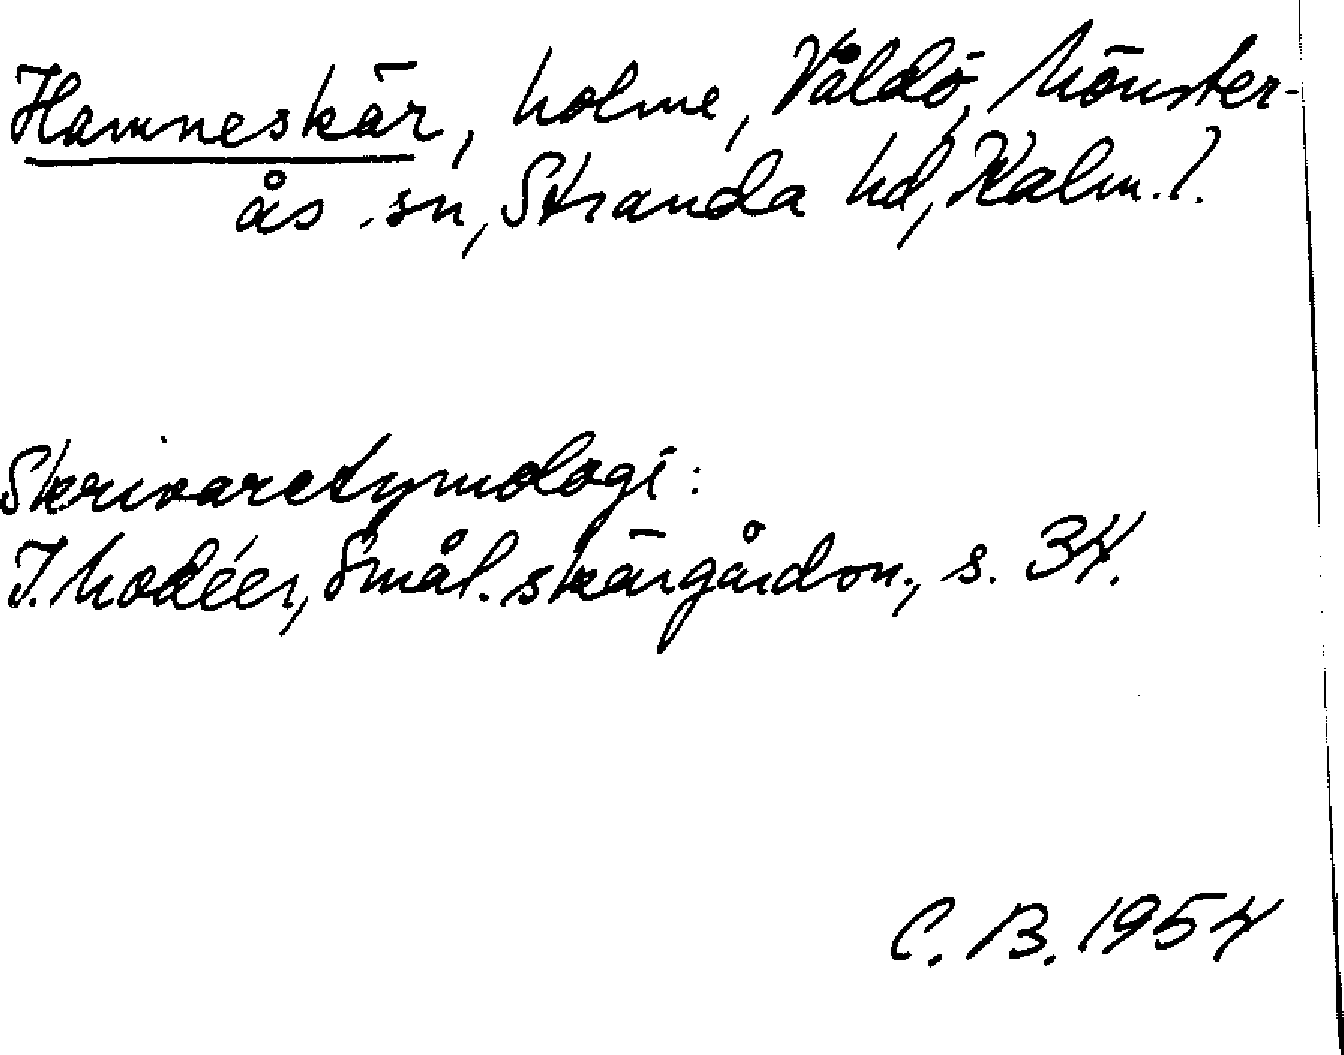 Hamneskär, holme, Våldö, Mönster-
ås sn, Stranda hd, Kalm. l.
Skrivaretymologi:
I. Modéer, Smål. skärgårdsn., s. 34.
C. B. 1954